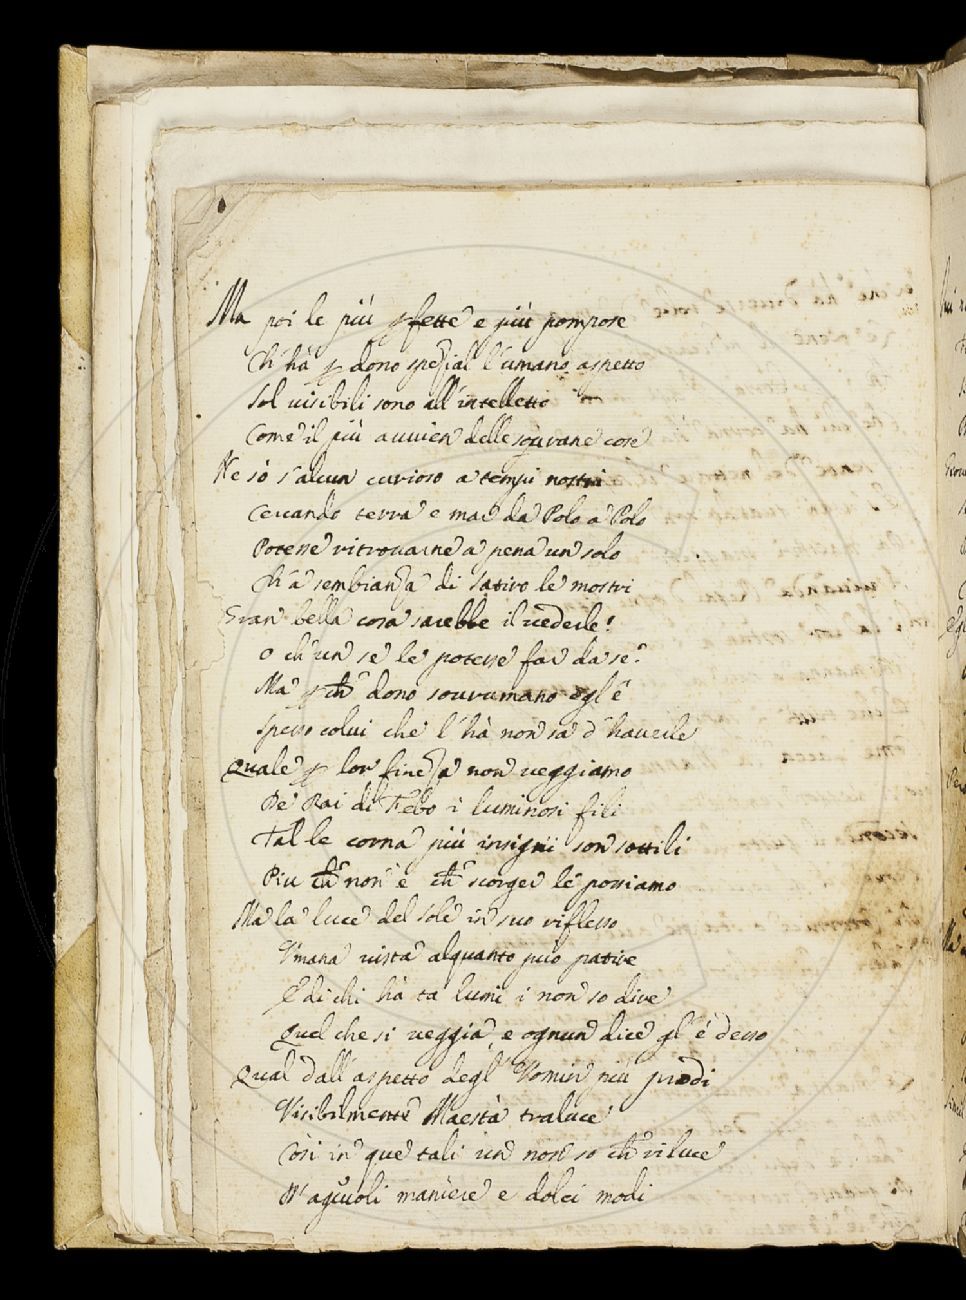 Ma poi le più pfette e più pompose
Ch'hà p dono spezial l'umano aspetto
Sol uisibili sono all'intelletto
Come il più auuien delle sourane cose
Ne sò s'alcun curioso a tempi nostri
Cercando terra e mar da Polo a Polo
Potesse ritrouarne a pena un solo
Ch'a sembianza di satiro le mostri
Gran bella cosa sarebbe il uederle!
O ch'un se le potesse far da se!
Ma p ch dono sourumano egl'è
Spesso colui che l'hà non sa d'hauerle
Quale p lor finezza non ueggiamo
De Rai di Febo i luminosi fili
Tal le corna più insigni son sottili
Piu ch non è ch scorger le possiamo
Ma la luce del sole in suo riflesso
Vmana uista alquanto può patire
E di chi hà ta lumi i non so dire
Quel che si ueggia, e ognun dice gl'è desso
Qual dall'aspetto degl'Vomin più prodi
Visibilmente Maestà traluce
Così in que tali un non so ch riluce
D'ageuoli maniere e dolci modi